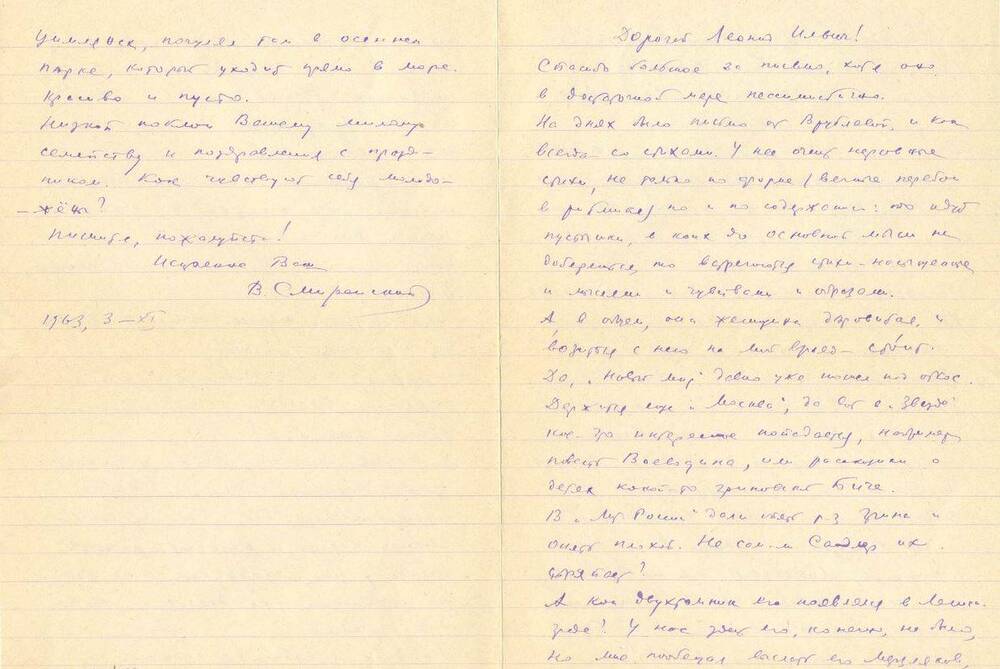 Цимлянск, погулял там в осеннем
парке, который уходит прямо в море.
Красиво и пусто.
Низкой поклон Вашему милому
семейству и поздравления с празд-
ником. Как чувствуют себя молодо-
-жёны?
Пишите, пожалуйста!
Искренно Ваш
В. Смиренский
1963, 3-XI
Дорогой Леонид Ильич!
Спасибо большое за письмо, хотя оно
в достаточной мере пессимистично.
На днях было письмо от Врублевой, и как
всегда со стихами. У нее очень неровные
стихи, не только по форме (вечные перебои
в ритмике) но и по содержанию: то идут
пустышки, в коих до основной мысли не
доберешься, то встречаются стихи насыщенные
и мыслями и чувствами и образами.
А, в общем, она женщина даровитая, и
возиться с нею на мой взгляд – сто́ит.
Да, „Новый мир" давно уже пошел под откос.
Держится еще „Москва", да вот в „Звезде"
кое-что интересное попадается, например
повесть Воеводина, или рассказики о
детях какой-то Биче.
В „Лит России" дали опять р-з Грина и
опять плохой. Не сам-ли Сандлер их
стряпает?
А как двухтомник его появлялся в Ленин-
граде? У нас здесь его, конечно, не было,
но мне пообещал выслать его